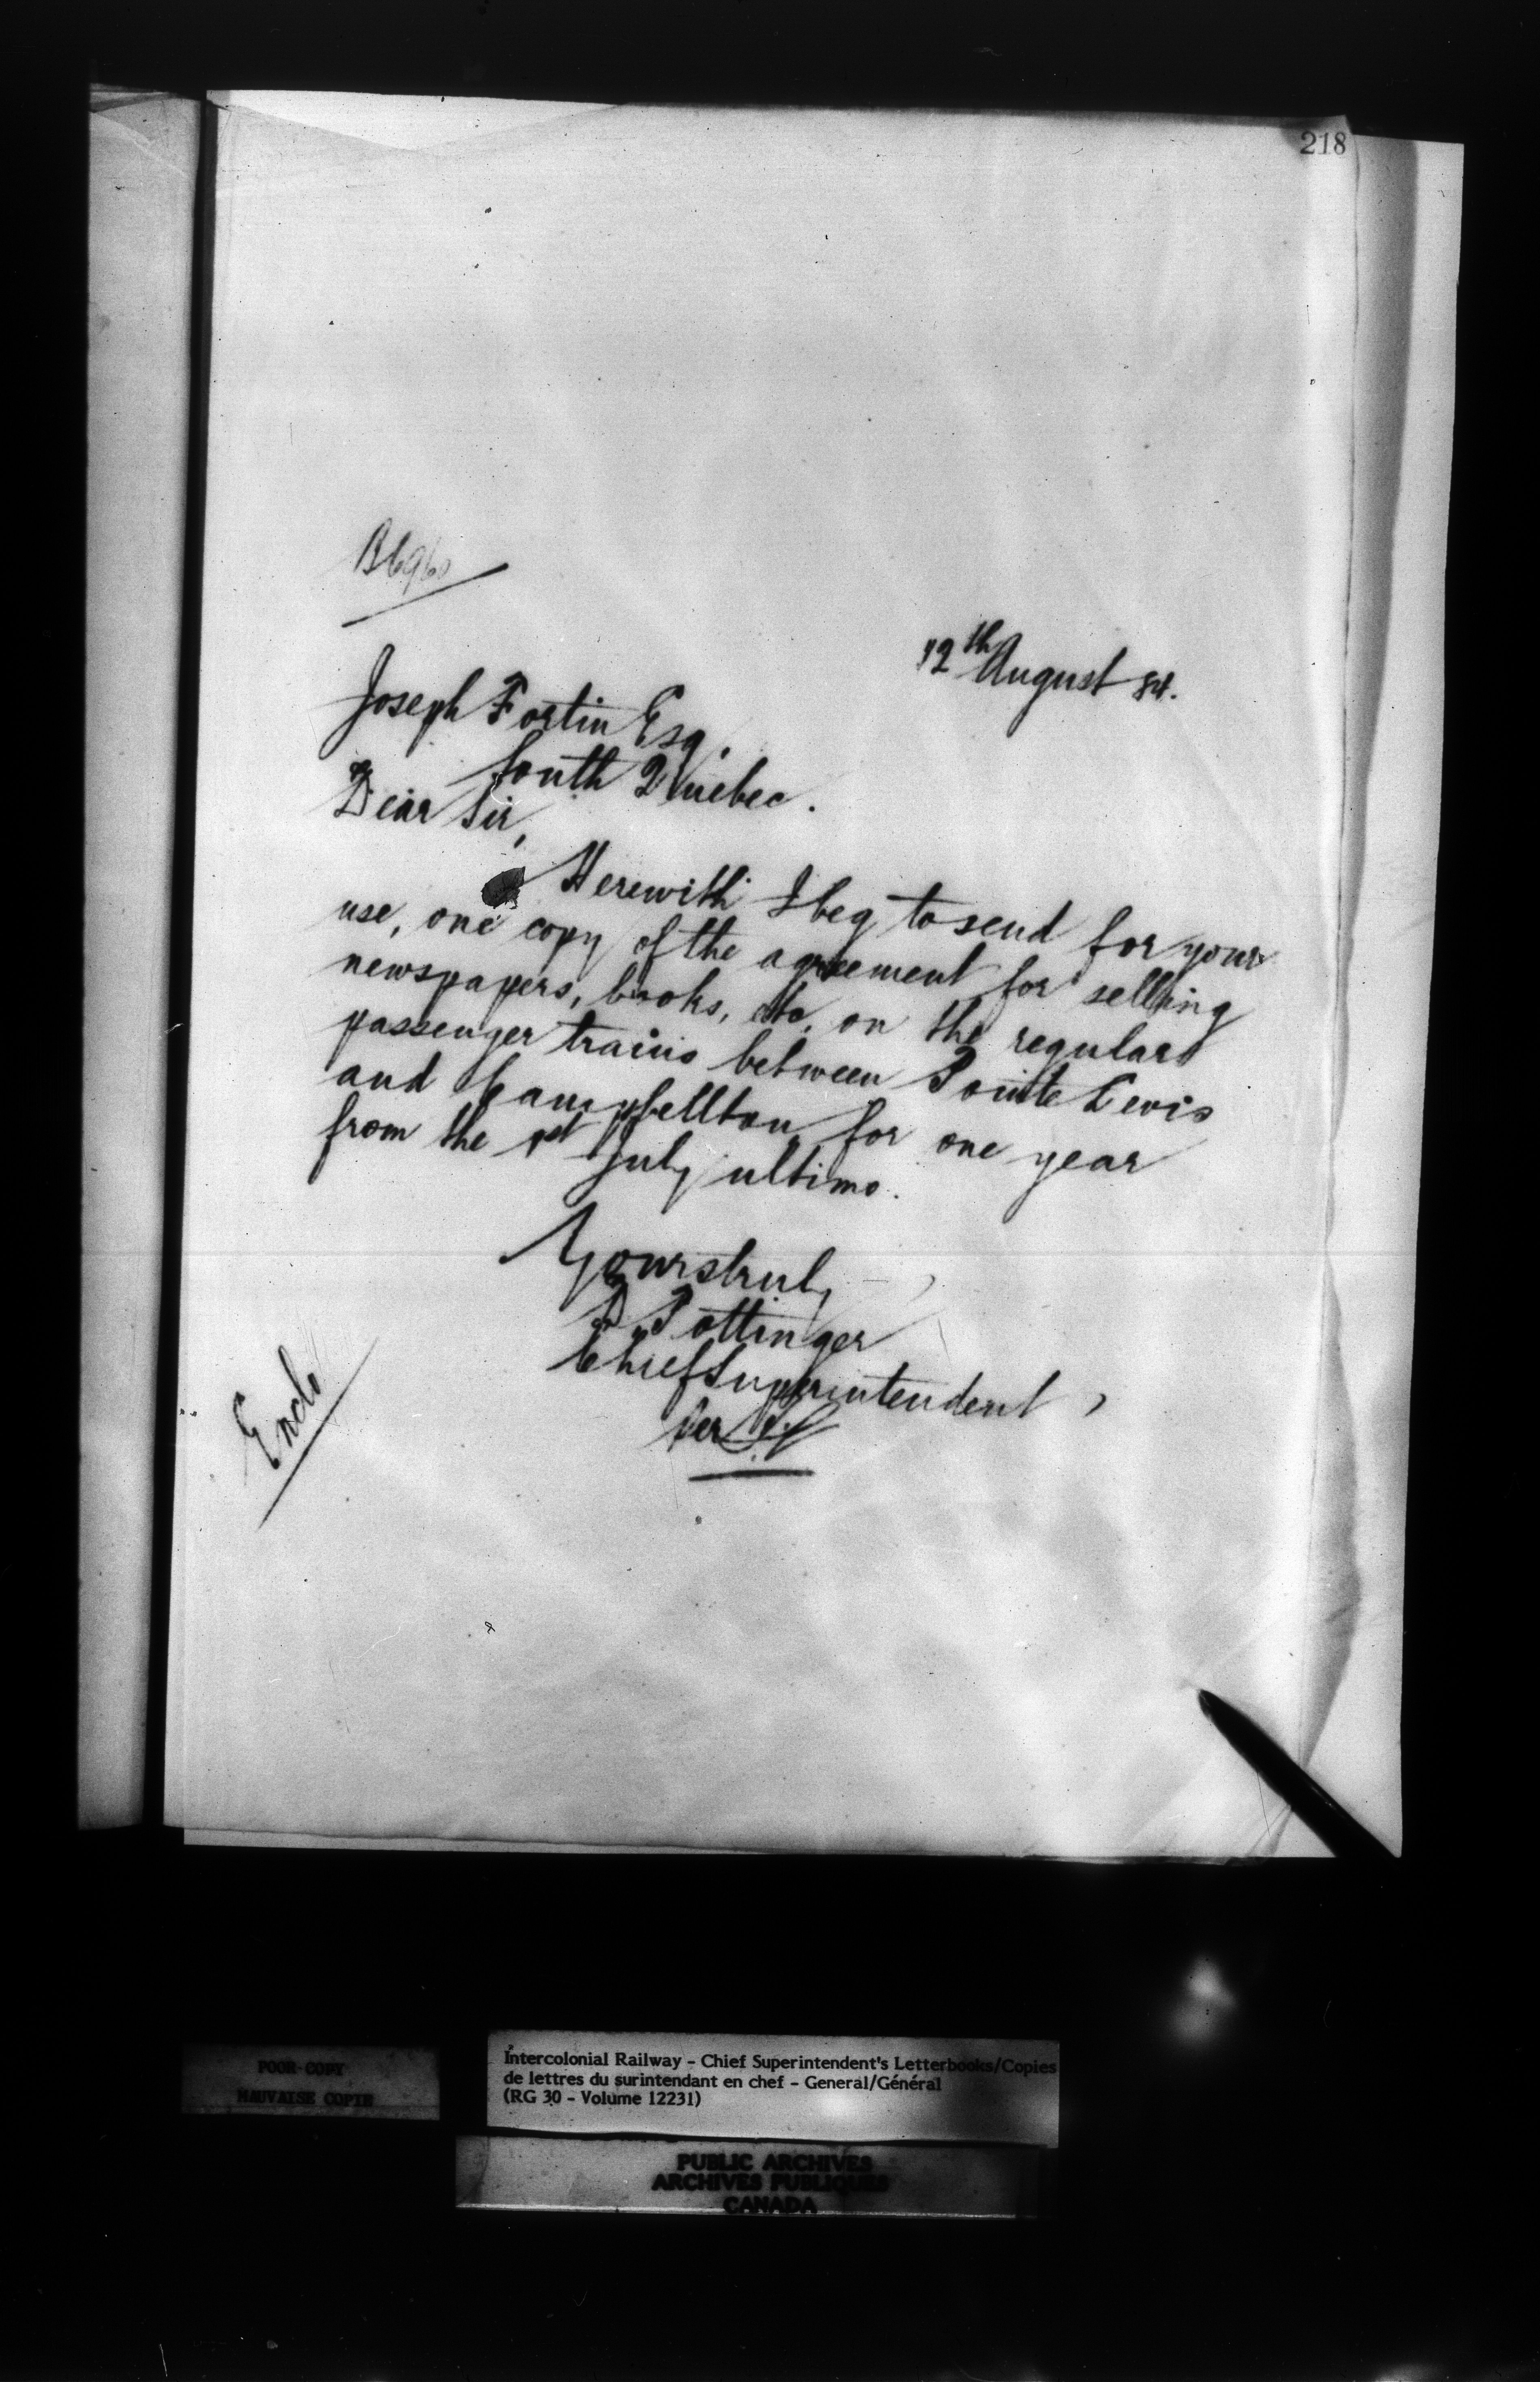 218
B6960
12th August 84.
Joseph Fortin Esq.
South Quebec.
Dear Sir,
Herewith I beg to send for your
use, one copy of the agreement for selling
newspapers, books, etc, on the regular
passenger trains between Pointe Levis
and Campbellton for one year
from the 1st July ultimo.
Yours truly
D Pottinger
Chief Superintendent
Per
Enclo
POOR COPY
MAUVAISE COPIE
Intercolonial Railway - Chief Superintendent's Letterbooks/Copies
de lettres du surintendant en chef - General/Général
(RG 30 - Volume 12231)
PUBLIC ARCHIVES
ARCHIVES PUBLIQUES
CANADA